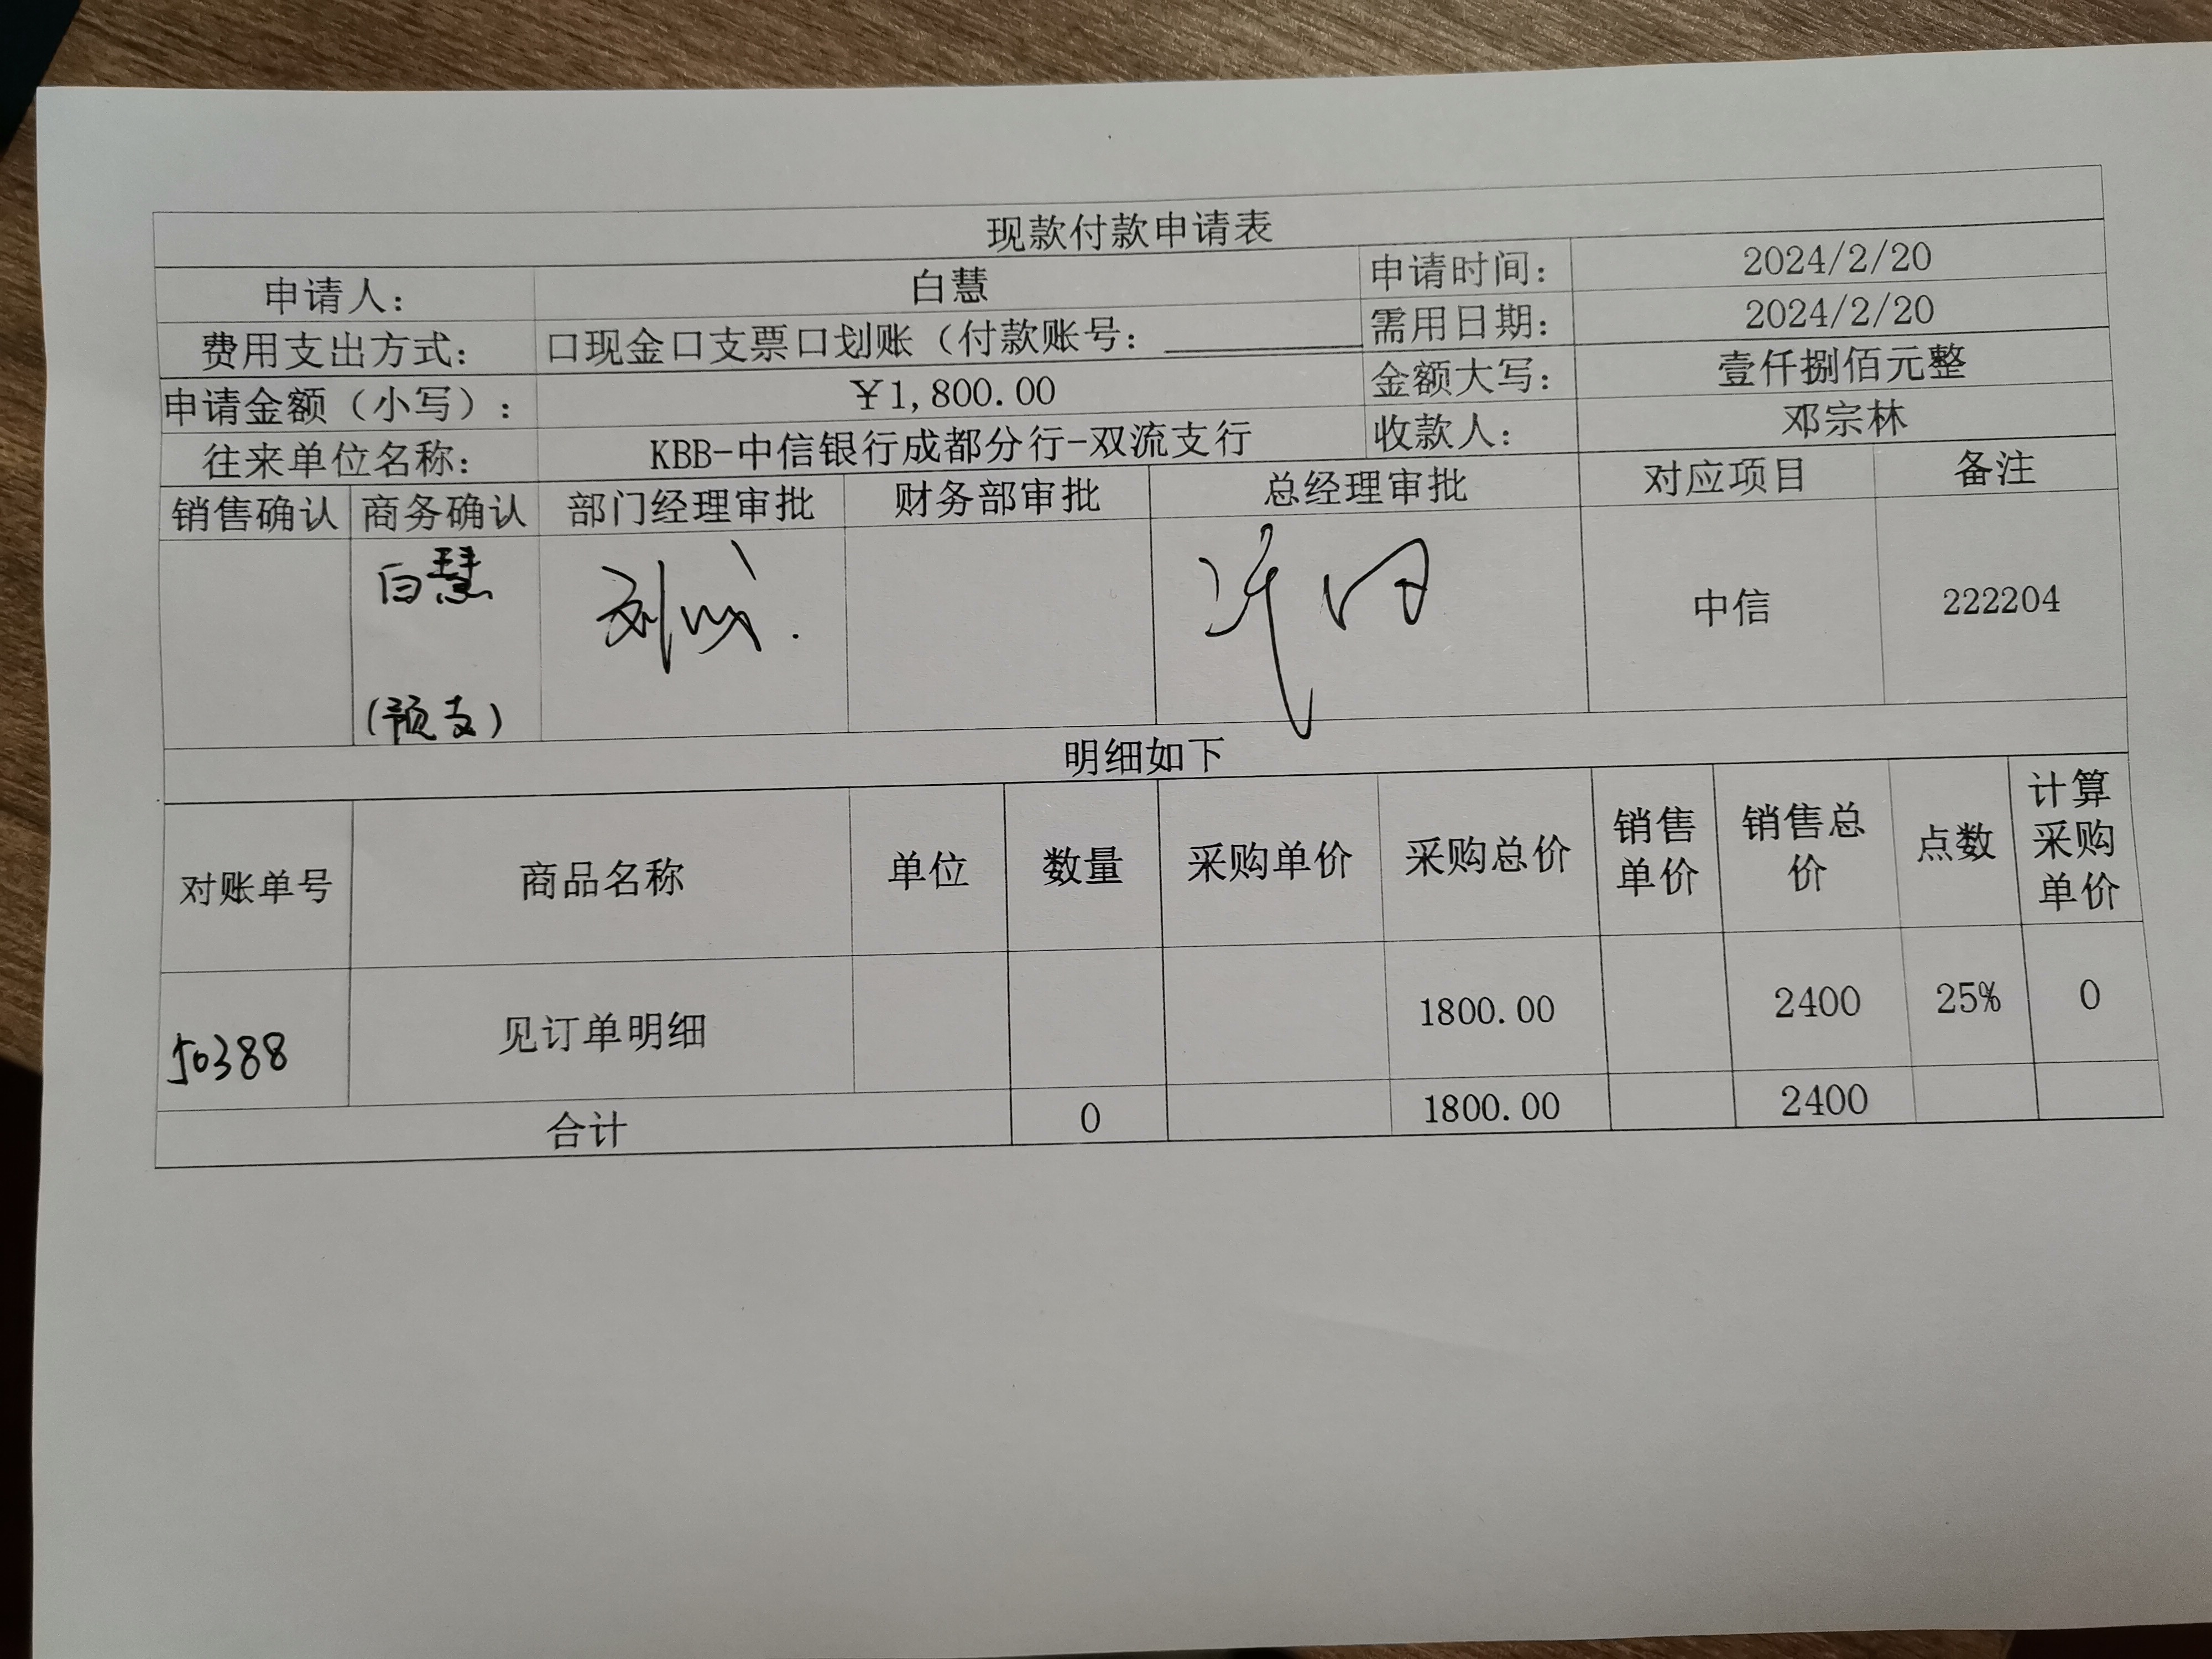 现款付款申请表
申请人： 白慧 申请时间： 2024/2/20
费用支出方式： 口现金口支票口划账（付款账号：__________ 需用日期： 2024/2/20
申请金额（小写）： ￥1,800.00 金额大写： 壹仟捌佰元整
往来单位名称： KBB-中信银行成都分行-双流支行 收款人： 邓宗林
销售确认 商务确认 部门经理审批 财务部审批 总经理审批 对应项目 备注
白慧 中信 222204
(预支)
明细如下
对账单号 商品名称 单位 数量 采购单价 采购总价 销售单价 销售总价 点数 计算采购单价
50388 见订单明细 1800.00 2400 25% 0
合计 0 1800.00 2400